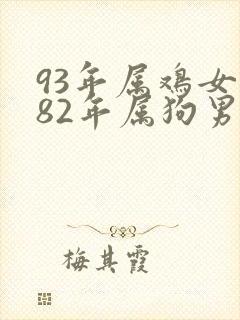 93年属鸡女
82年属狗男
梅其霞